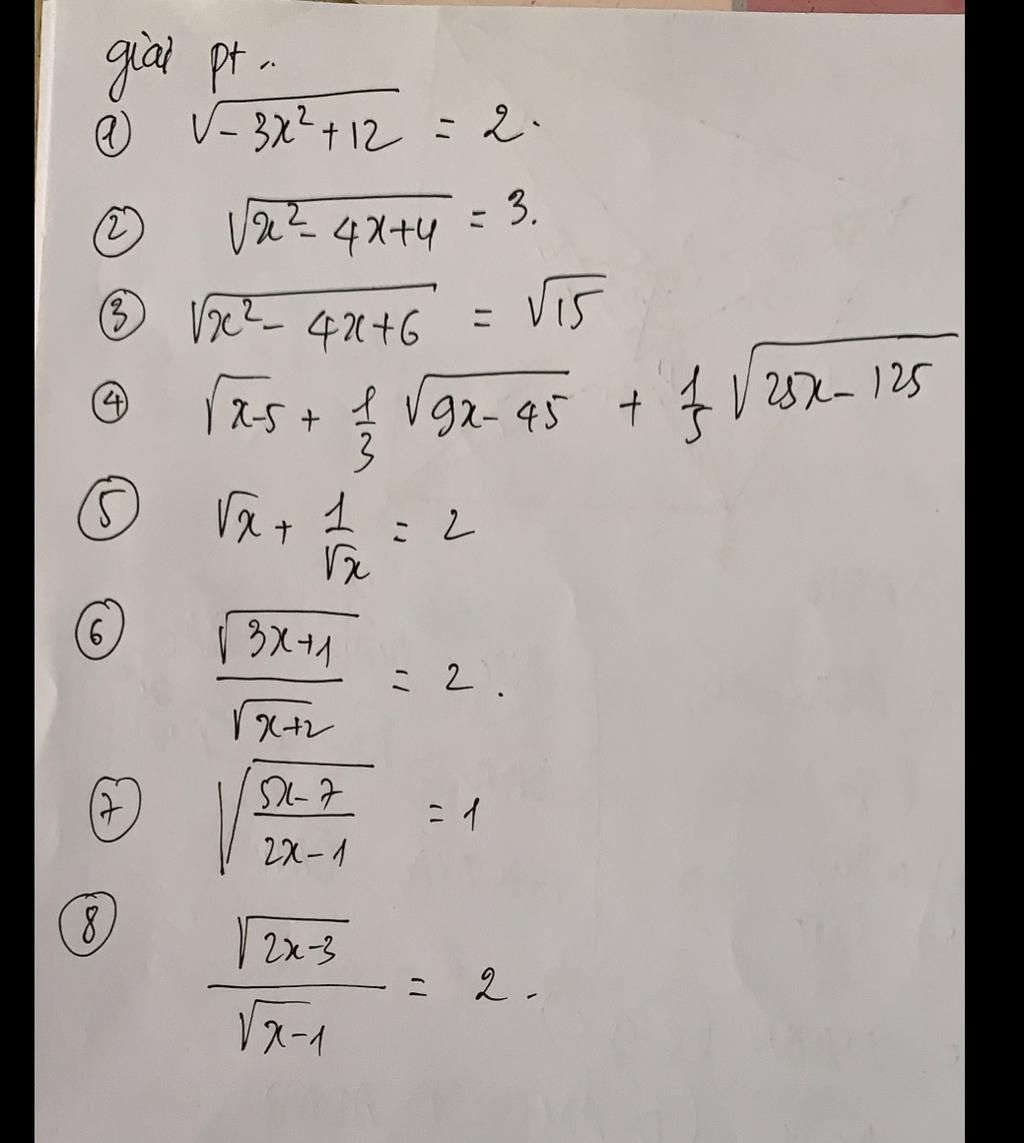 giải pt..
① √(-3x²+12) = 2.
② √(x²-4x+4) = 3.
③ √(x²-4x+6) = √15
④ √(x-5) + 1/3 √(9x-45) + 1/5 √(25x-125)
⑤ √x + 1/√x = 2
⑥ √(3x+1)/√(x+2) = 2.
⑦ √((5x-7)/(2x-1)) = 1
⑧ √(2x-3)/√(x-1) = 2.